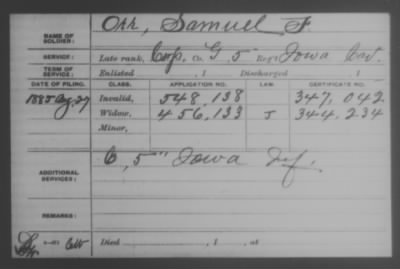 NAME OF SOLDIER: Orr, Samuel F.
SERVICE: Late rank, Corp, Co. G, 5 Reg't Iowa Cav.
TERM OF SERVICE: Enlisted , 1 Discharged , 1
DATE OF FILING. CLASS. APPLICATION NO. LAW CERTIFICATE NO.
1885 Aug. 27 Invalid, 548,138 347,042
Widow, 456,133 J 344,234
Minor,
ADDITIONAL SERVICES: C, 5" Iowa Inf.
REMARKS:
Died , 1 , at